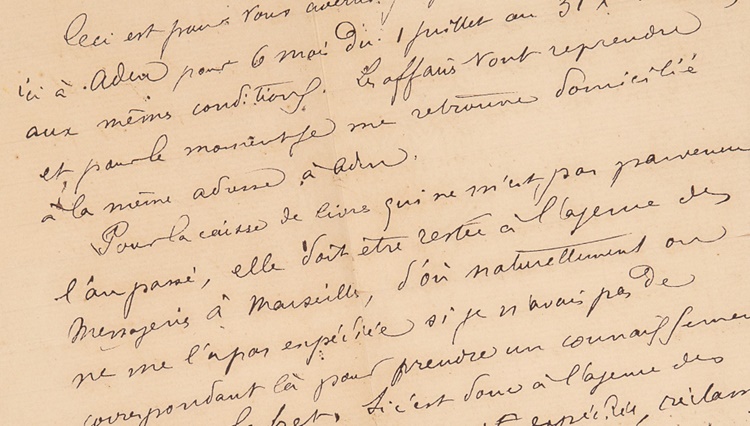 Ceci est pour vous avertir
ici à Aden pour 6 mois du 1 juillet au 31 X
aux mêmes conditions. Les affaires vont reprendre
et pour le moment je me retrouve domicilié
à la même adresse à Aden.
Pour la caisse de livres qui ne m'est pas parvenue
l'an passé, elle doit être restée à l'agence des
Messageries à Marseille, d'où naturellement on
ne me l'a pas expédiée si je n'avais pas de
correspondant là pour prendre un connaissement
Si c'est donc à l'agence des
expédiée, réclam